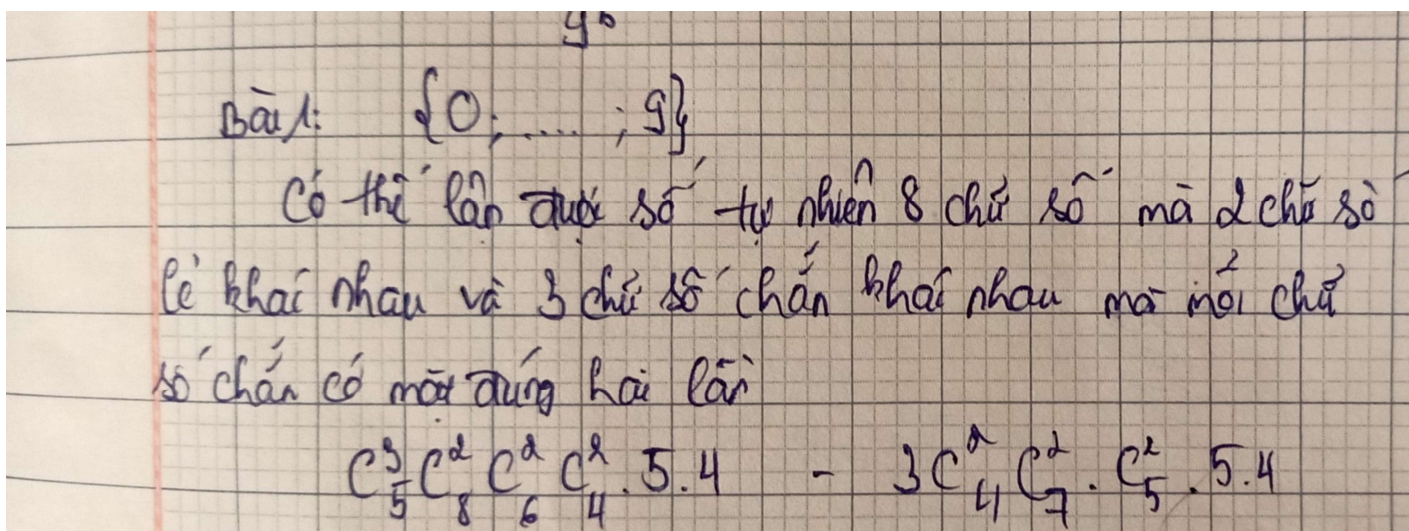 Bài 1: {0; ....; 9}
Có thể lập được số tự nhiên 8 chữ số mà 2 chữ số
lẻ khác nhau và 3 chữ số chẵn khác nhau mà mỗi chữ
số chẵn có mặt đúng hai lần
C³₅ C²₈ C²₆ C²₄ . 5 . 4 - 3 C²₄ C²₇ . C²₅ . 5 . 4